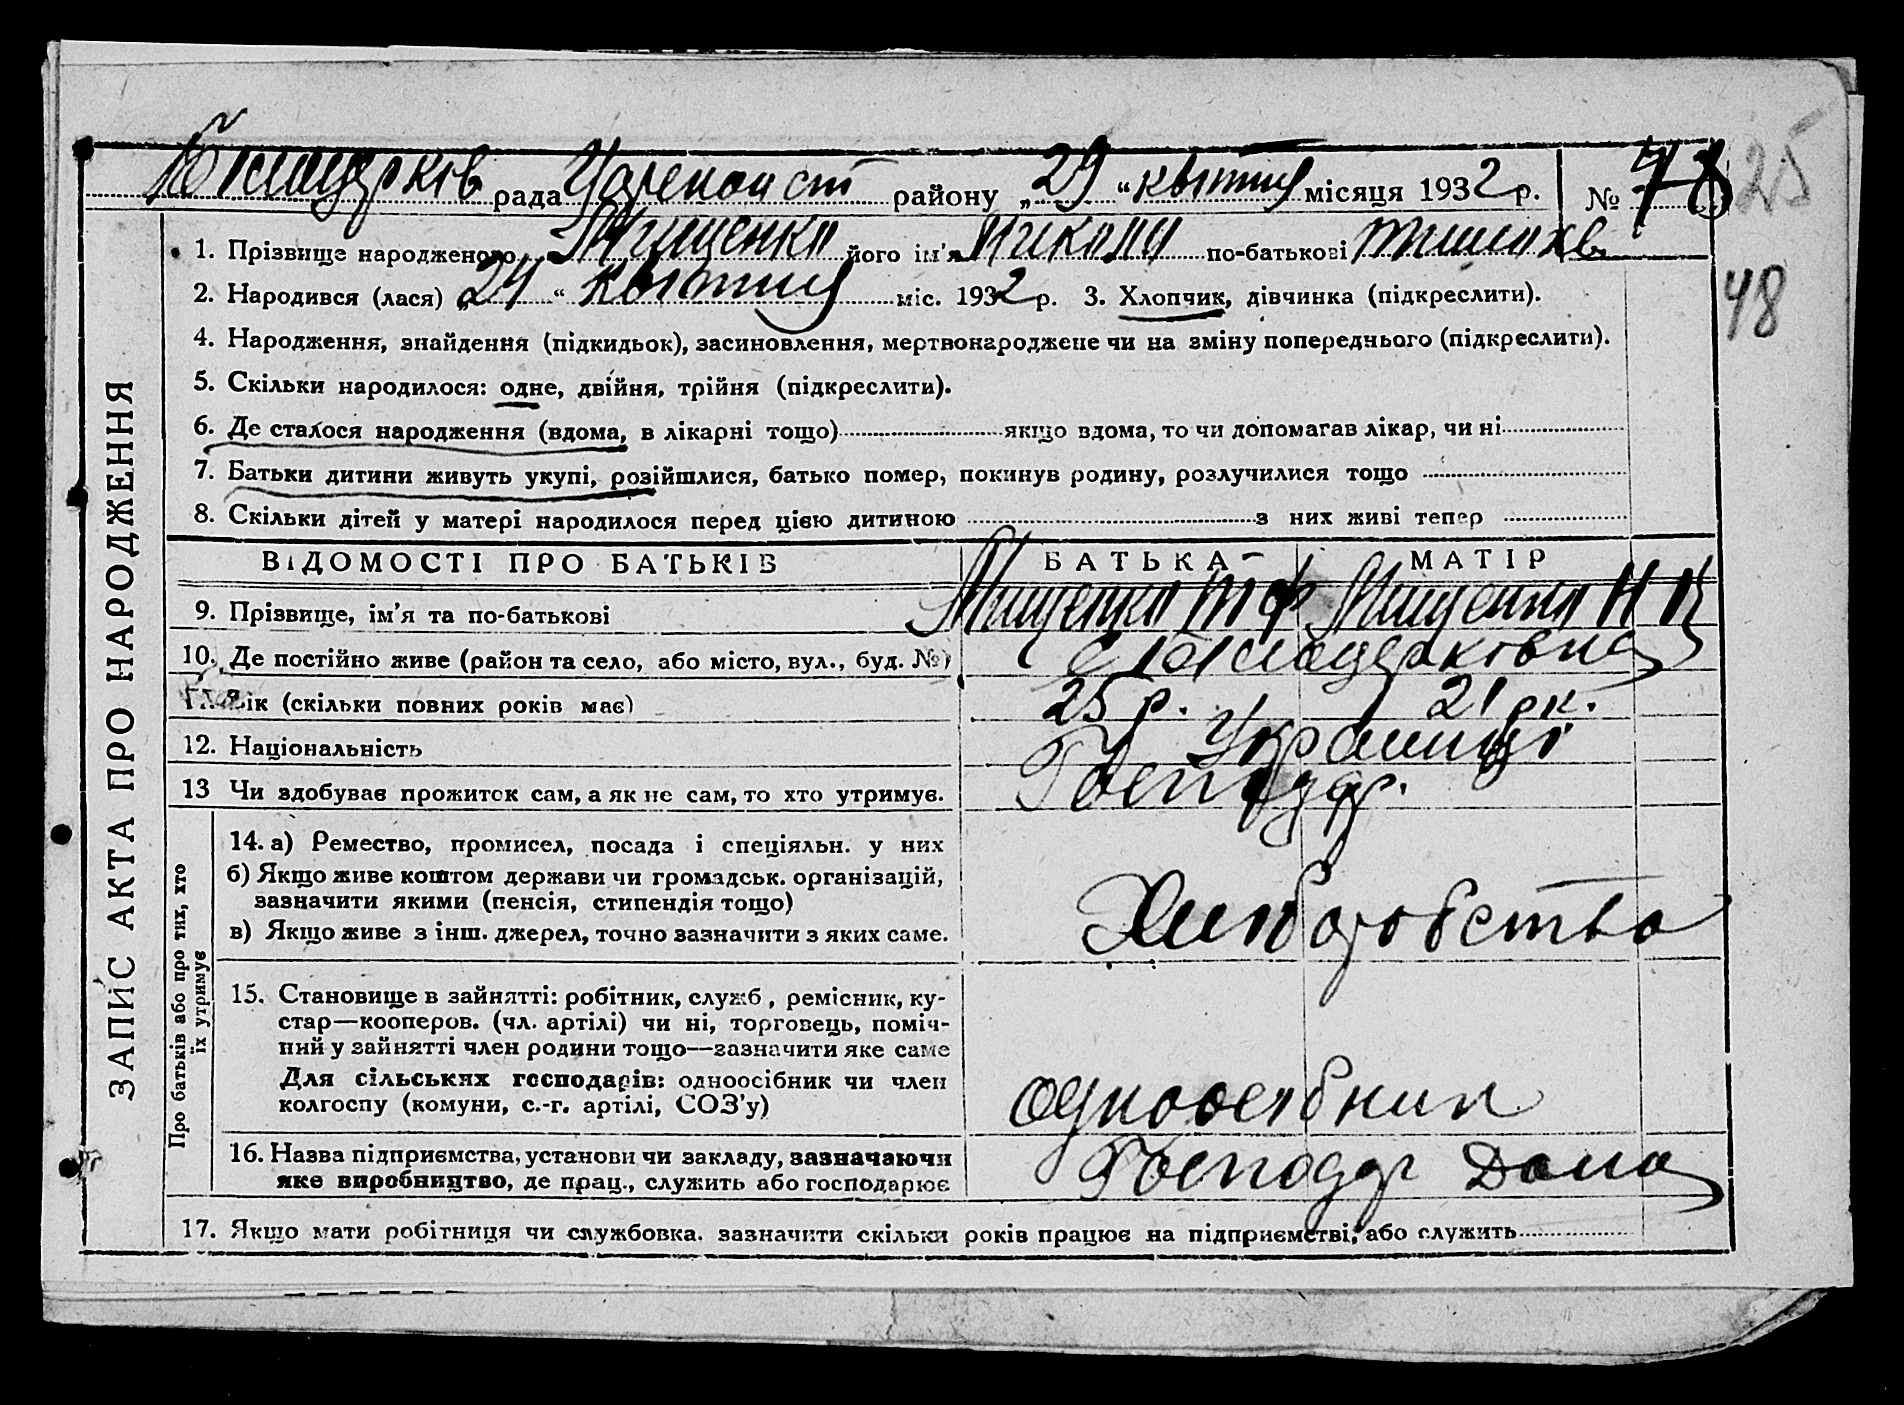 Білоцерків рада району „29“ квітня місяця 1932 р. № 48
25
1. Прізвище народженого Мищенко його ім'я Никола по-батькові
2. Народився (лася) „24“ квітня міс. 1932 р. 3. Хлопчик, дівчинка (підкреслити).
48
4. Народження, знайдення (підкидьок), засиновлення, мертвонароджене чи на зміну попереднього (підкреслити).
5. Скільки народилося: одне, двійня, трійня (підкреслити).
6. Де сталося народження (вдома, в лікарні тощо) якщо вдома, то чи допомагав лікар, чи ні
7. Батьки дитини живуть укупі, розійшлися, батько помер, покинув родину, розлучилися тощо
8. Скільки дітей у матері народилося перед цією дитиною з них живі тепер
ЗАПИС АКТА ПРО НАРОДЖЕННЯ
ВІДОМОСТІ ПРО БАТЬКІВ БАТЬКА МАТІР
9. Прізвище, ім'я та по-батькові Мищенко Т Ф Мищенко Н
10. Де постійно живе (район та село, або місто, вул., буд. №)
11. Вік (скільки повних років має) 25 р. 21 рк.
12. Національність Українці
13 Чи здобуває прожиток сам, а як не сам, то хто утримує. Господар.
Про батьків або про тих, хто
їх утримує
14. а) Ремество, промисел, посада і спеціяльн. у них
б) Якщо живе коштом держави чи громадськ. організацій,
зазначити якими (пенсія, стипендія тощо)
в) Якщо живе з інш. джерел, точно зазначити з яких саме.
Хлиборобство
15. Становище в зайнятті: робітник, служб., ремісник, ку-
стар—кооперов. (чл. артілі) чи ні, торговець, поміч-
ний у зайнятті член родини тощо—зазначити яке саме
Для сільських господарів: одноосібник чи член
колгоспу (комуни, с.-г. артілі, СОЗ'у)
одноосібник
16. Назва підприємства, установи чи закладу, зазначаючи
яке виробництво, де прац., служить або господарює
Господар Дома
17. Якщо мати робітниця чи службовка. зазначити скільки років працює на підприємстві, або служить